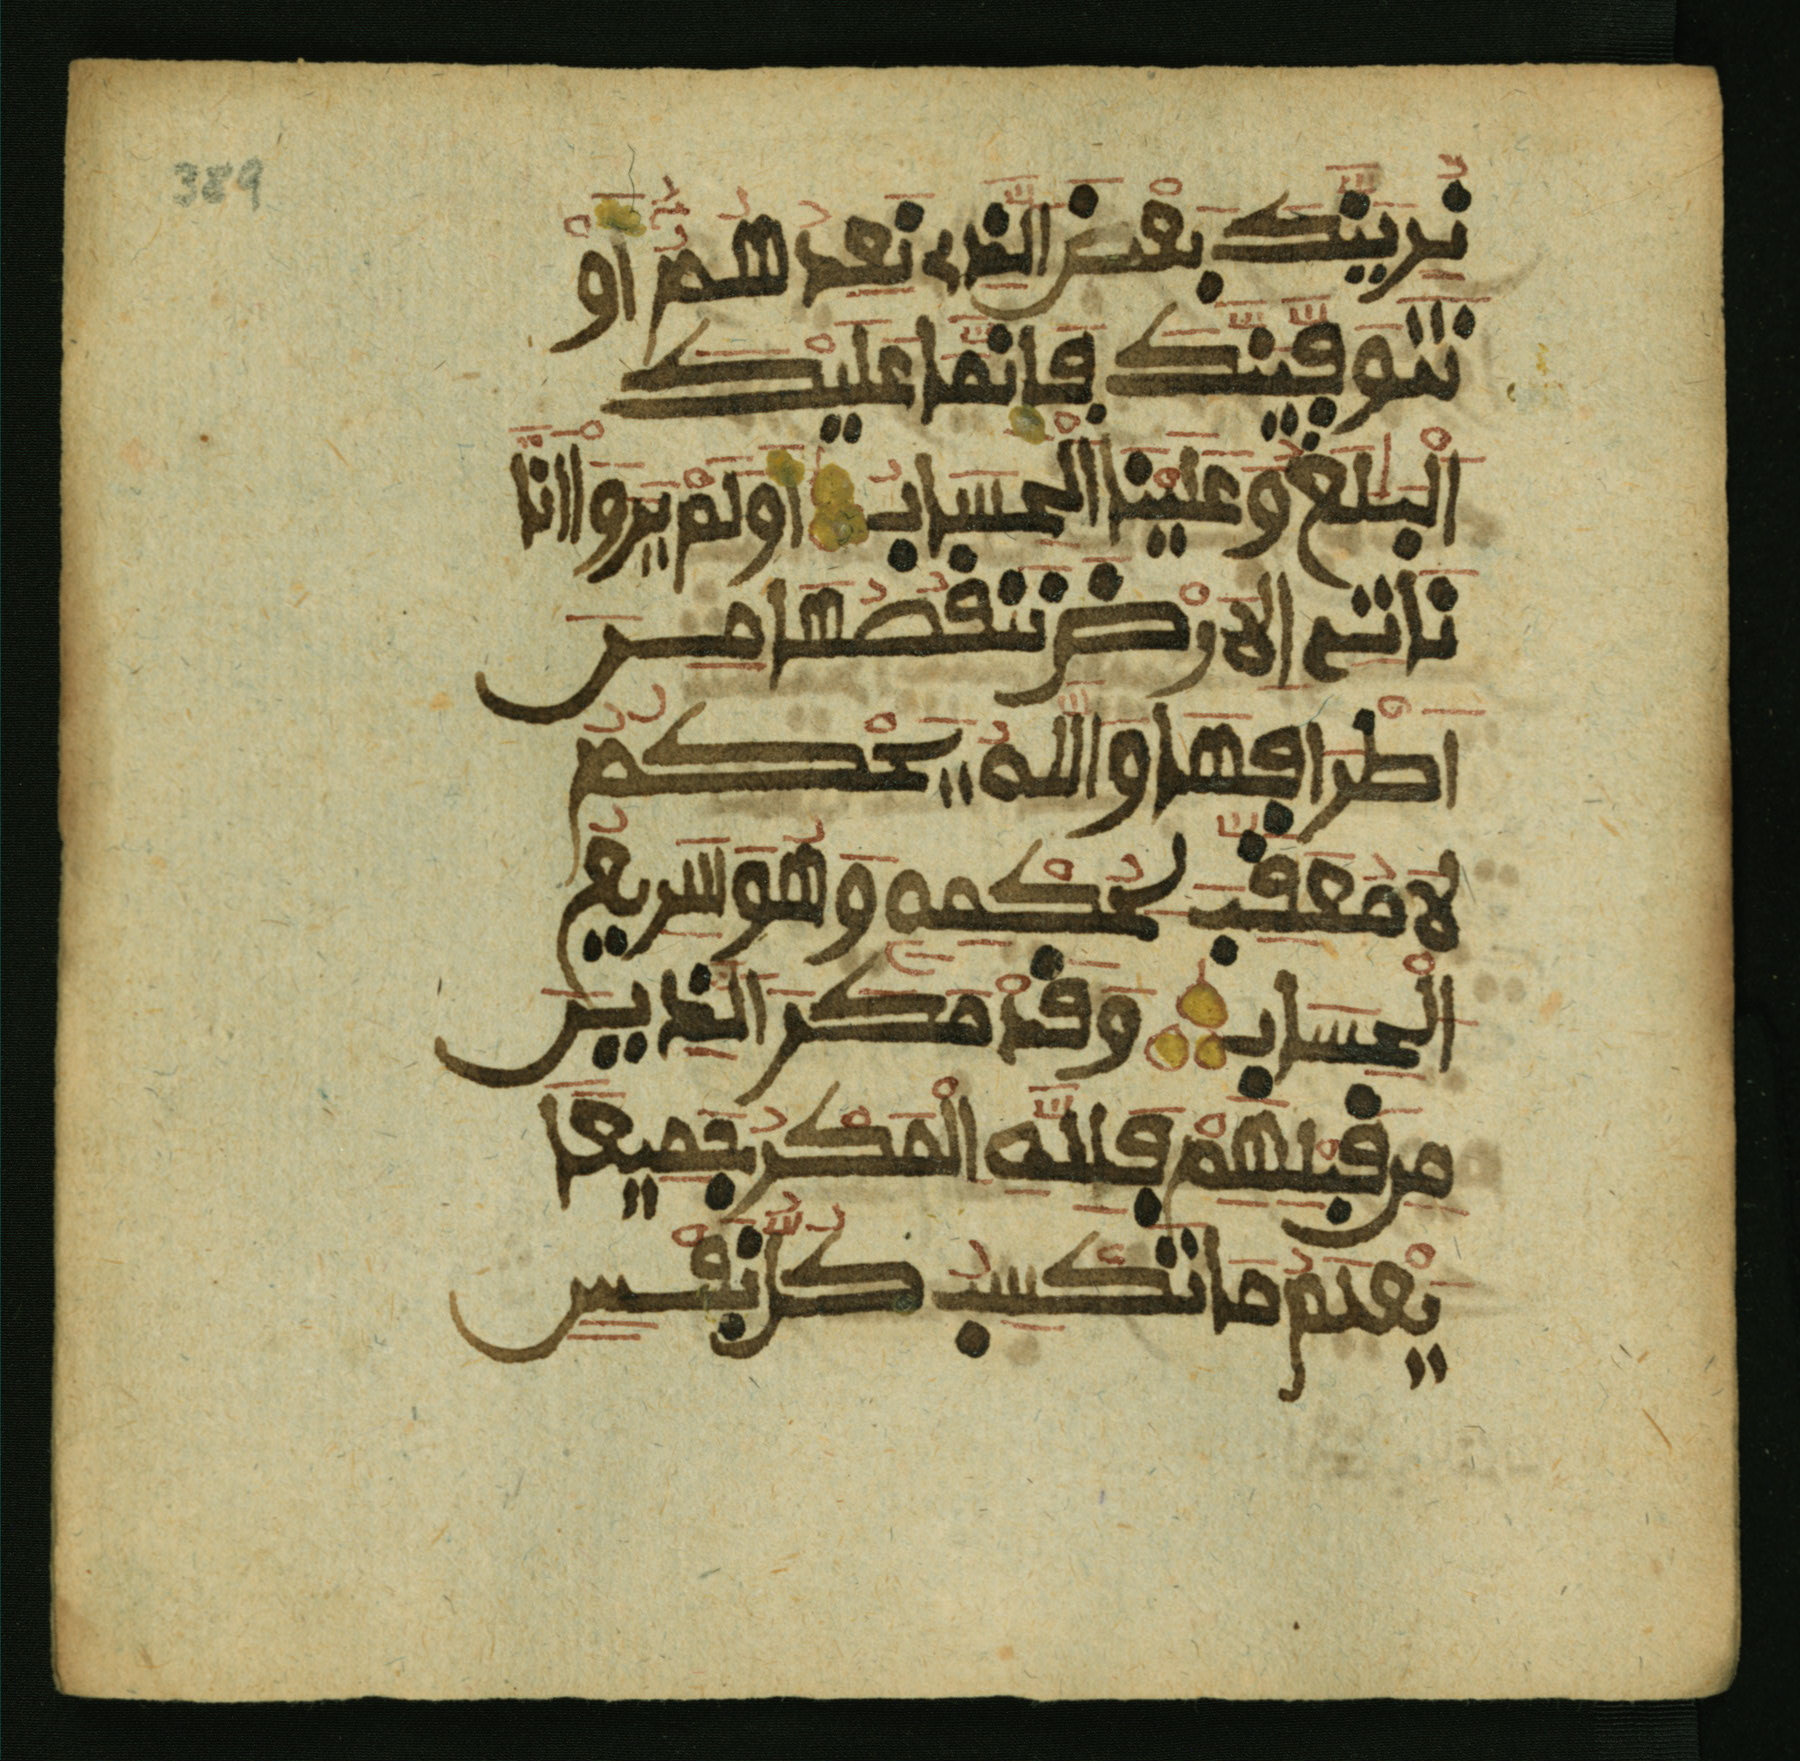 389
نُرِيَنَّكَ بَعْضَ الَّذِي نَعِدُهُمُۥ أَوْ
نَتَوَفَّيَنَّكَ فَإِنَّمَا عَلَيْكَ
الْبَلَٰغُ وَعَلَيْنَا الْحِسَابُ أَوَلَمْ يَرَوْا أَنَّا
نَأْتِي الْأَرْضَ نَنقُصُهَا مِنَ
اَطْرَافِهَا وَاللَّهُ يَحْكُمُ
لَا مُعَقِّبَ لِحُكْمِهِ وَهُوَ سَرِيعُ
الْحِسَابِ وَقَدْ مَكَرَ الَّذِينَ
مِن قَبْلِهِمْ فَلِلَّهِ الْمَكْرُ جَمِيعًا
يَعْلَمُ مَا تَكْسِبُ كُلُّ نَفْسٍ